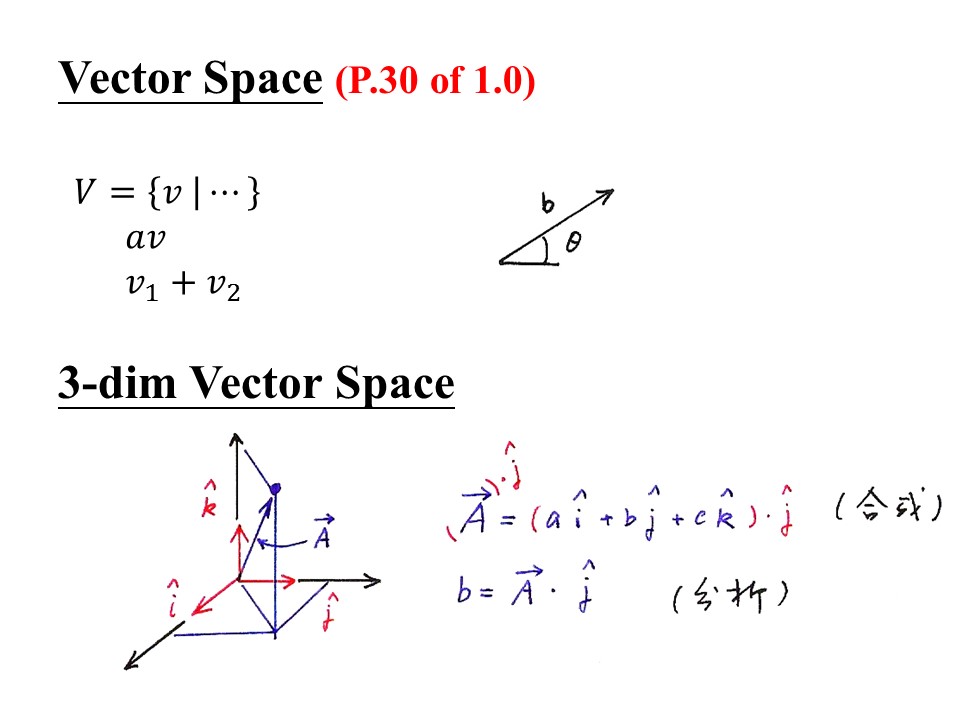 Vector Space (P.30 of 1.0)
V = {v | ⋯ }
av
v₁ + v₂
b
θ
3-dim Vector Space
k̂
A⃗
î
ĵ
(A⃗)·ĵ = (a î + b ĵ + c k̂)·ĵ (合成)
b = A⃗ · ĵ (分析)